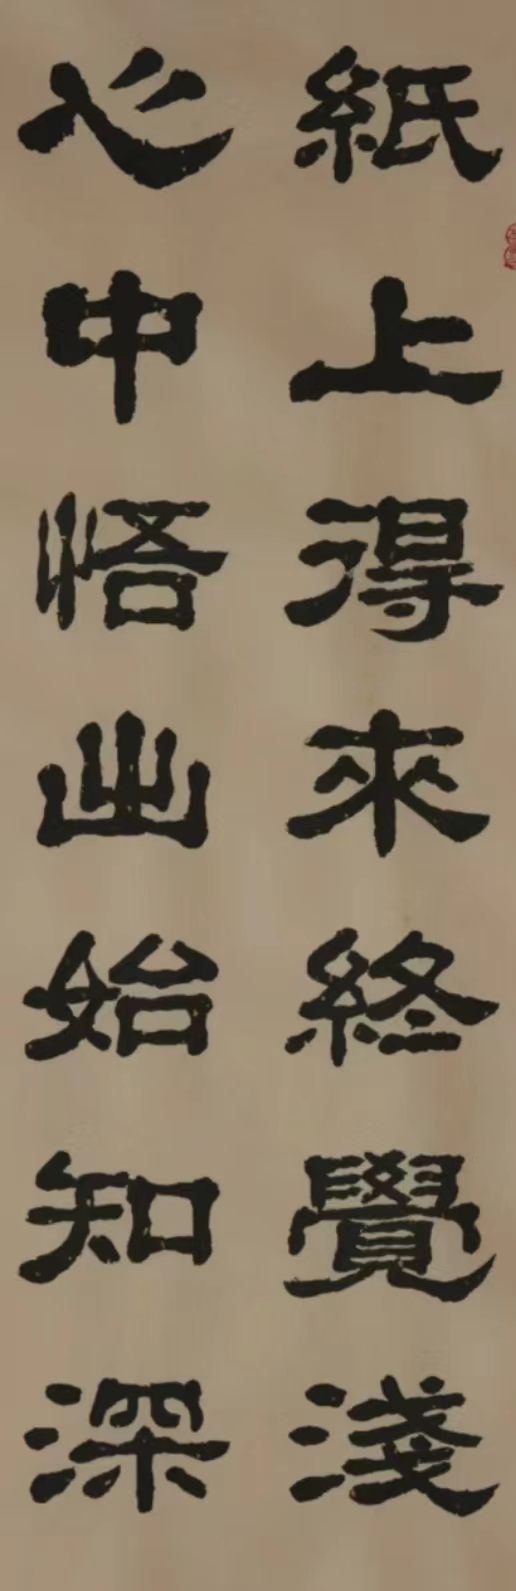 紙上得來終覺淺
心中悟出始知深